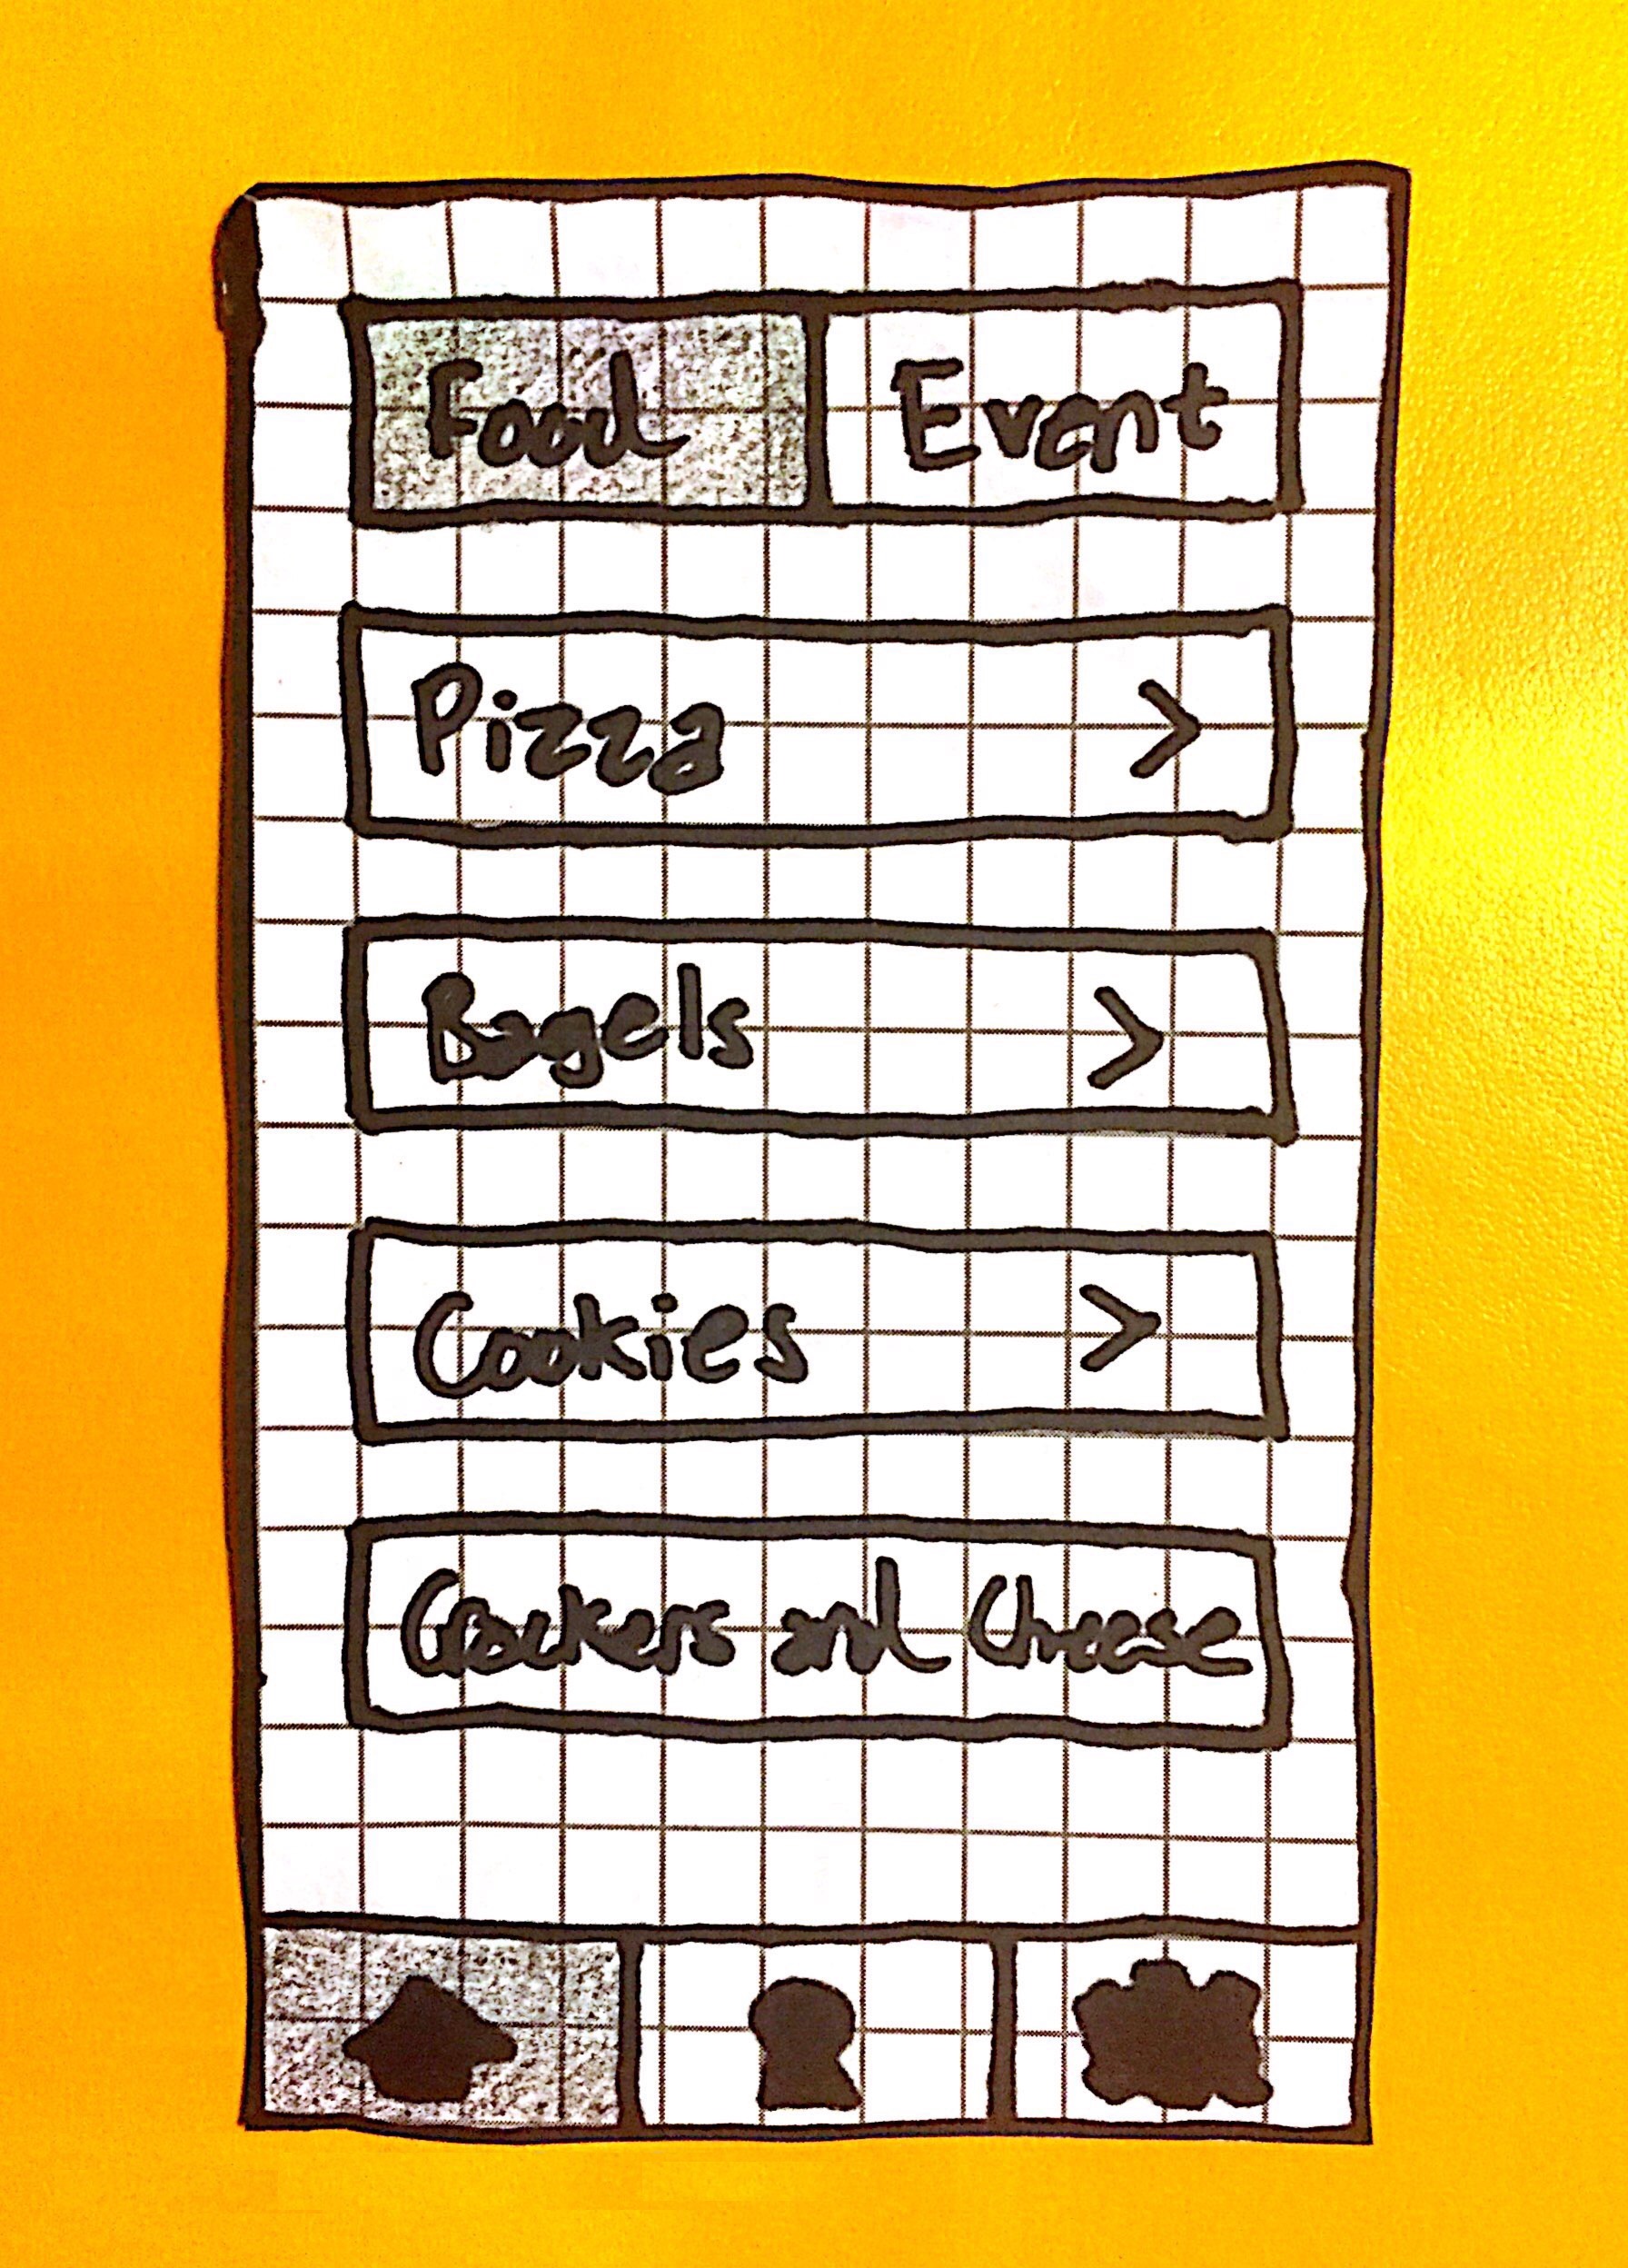 Food Event
Pizza >
Bagels >
Cookies >
Crackers and Cheese